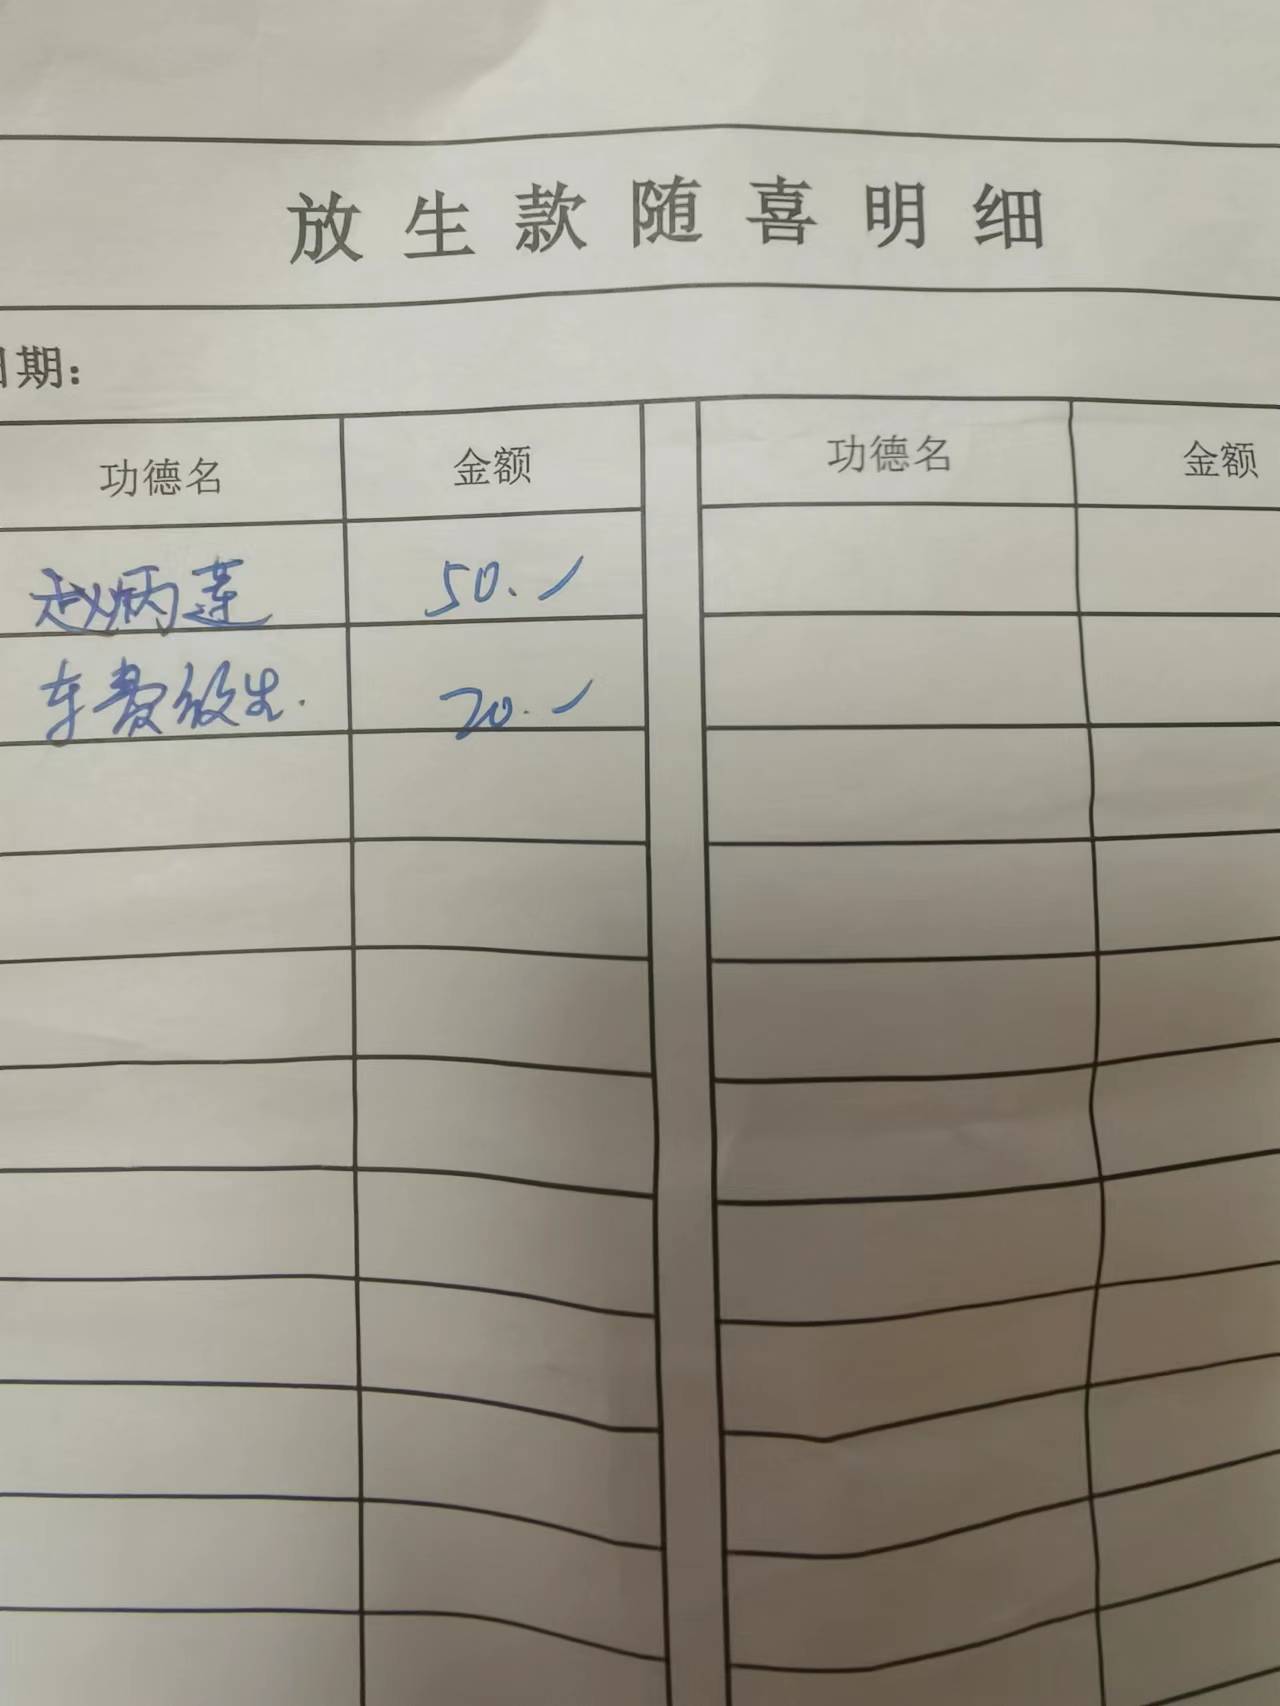 放生款随喜明细
日期：
功德名 金额 功德名 金额
赵炳莲 50.
车费放生. 20.